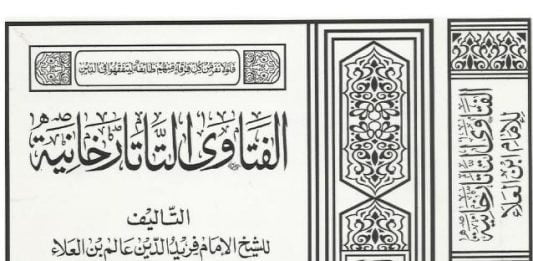 فلولا نفر من كل فرقة منهم طائفة ليتفقهوا في الدين
الفتاوى التاتارخانية
التأليف
للشيخ الإمام فريد الدين عالم بن العلاء
الفتاوى التاتارخانية
للإمام ابن العلاء